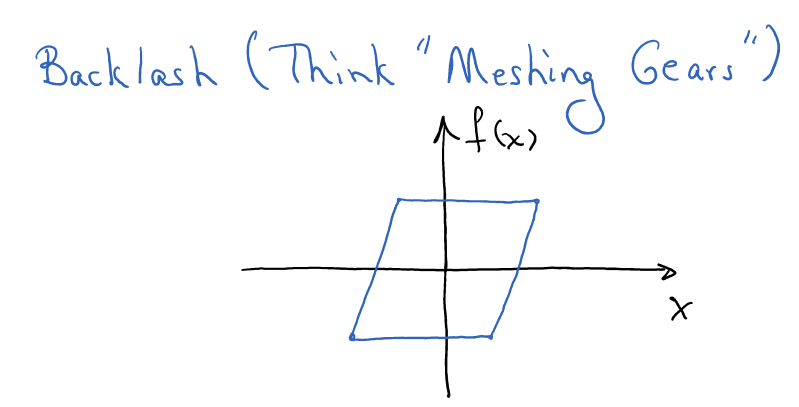 Backlash (Think "Meshing Gears")
f(x)
x